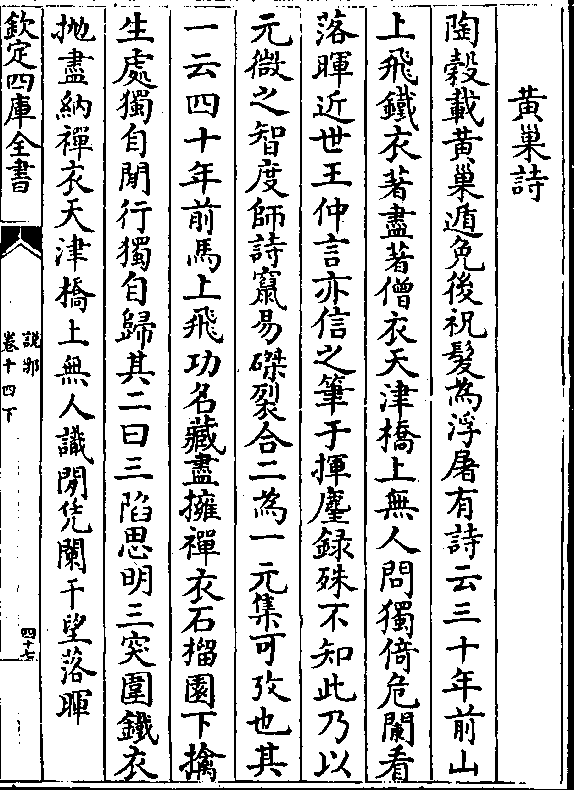 黃巢詩
陶糓載黃巢遁免後祝髮為浮屠有詩云三十年前山
上飛鐵衣著盡著僧衣天津橋上無人問獨倚危闌看
落暉近世王仲言亦信之筆于揮麈録殊不知此乃以
元微之智度師詩竄易磔裂合二為一元集可攷也其
一云四十年前馬上飛功名藏盡擁禪衣石榴園下擒
生處獨自閒行獨自歸其二曰三陷思明三突圍鐵衣
抛盡納禪衣天津橋上無人識閒凭闌干望落暉
欽定四庫全書
說郛
卷十四下
四十七